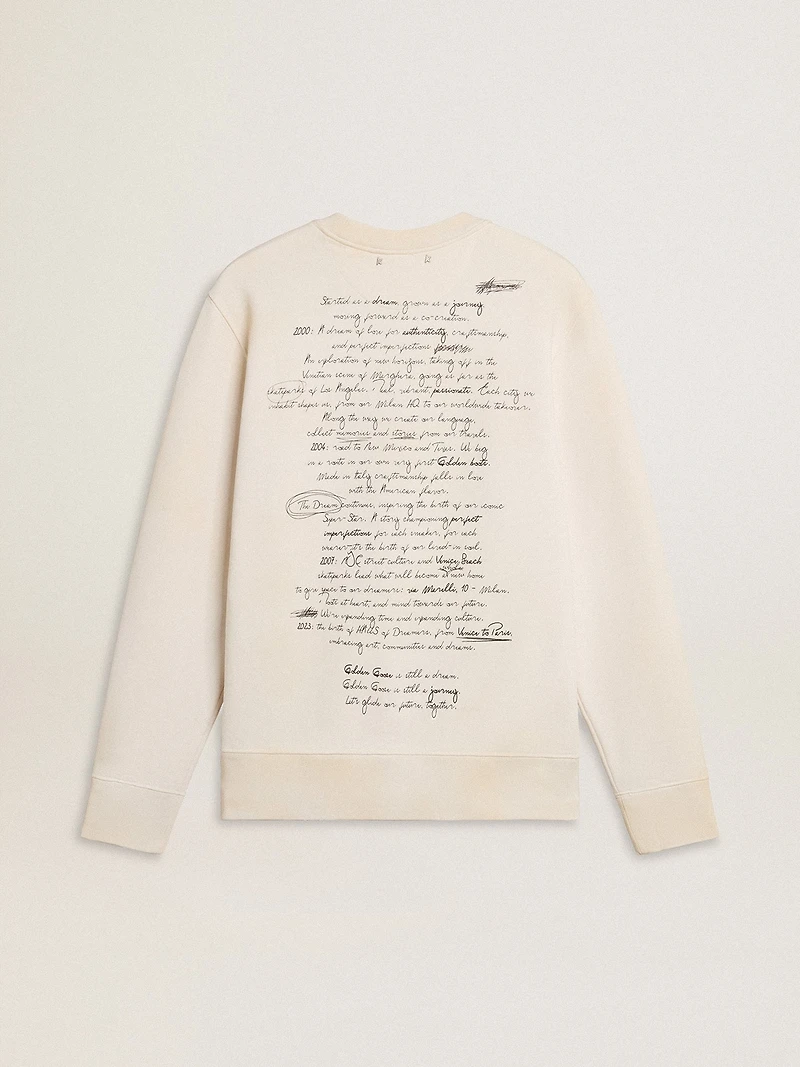 Started as a dream, grown as a journey,
moving forward as a co-creation.
2000: A dream of love for authenticity, craftsmanship,
and perfect imperfections
An exploration of new horizons, taking off in the
Venetian scene of Marghera, going as far as the
skateparks of Los Angeles. bal, vibrant, passionate. Each city we
inhabit shapes us, from our Milan HQ to our worldwide takeover.
Along the way we create our language,
collect memories and stories from our travels.
2004: road to New Mexico and Texas. We big
in a route in our own very first Golden boots.
Made in Italy craftsmanship falls in love
with the American flavor.
The Dream continues, inspiring the birth of our iconic
Super-Star. A story championing perfect
imperfections for each sneaker, for each
wearer-it's the birth of our lived-in soul.
2007: NYC street culture and Venice Beach
skateparks lead what will become a new home
to give space to our dreamers: via Morilli, 10 - Milan.
at heart, and mind towards our future.
We're expanding time and expanding culture.
2023: the birth of HAUS of Dreamers, from Venice to Paris,
embracing art, communities and dreams.
Golden Goose is still a dream.
Golden Goose is still a journey.
Let's glide our future, together.